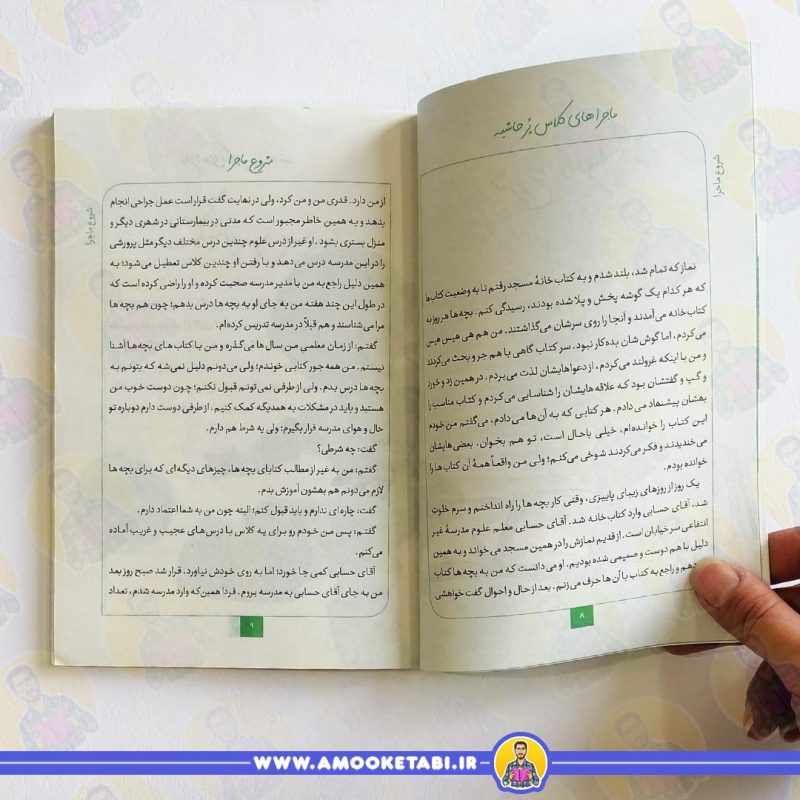 ماجراهای کلاس پرحاشیه
شروع ماجرا
نماز که تمام شد، بلند شدم و به کتاب خانهٔ مسجد رفتم تا به وضعیت کتاب‌ها
که هر کدام یک گوشه پخش و پلا شده بودند، رسیدگی کنم. بچه‌ها هر روز به
کتاب‌خانه می‌آمدند و آنجا را روی سرشان می‌گذاشتند. من هم هی هیس هیس
می‌کردم، اما گوش‌شان بدهکار نبود. سر کتاب گاهی با هم جر و بحث می‌کردند
و من با اینکه غرولند می‌کردم، از دعواهایشان لذت می‌بردم. در همین زد و خورد
و گپ و گفتشان بود که علاقه‌هایشان را شناسایی می‌کردم و کتاب مناسب را
بهشان پیشنهاد می‌دادم. هر کتابی که به آن‌ها می‌دادم، می‌گفتم من خودم
این کتاب را خوانده‌ام، خیلی باحال است، تو هم بخوان. بعضی‌هایشان
می‌خندیدند و فکر می‌کردند شوخی می‌کنم؛ ولی من واقعاً همهٔ آن کتاب‌ها را
خوانده بودم.
یک روز از روزهای زیبای پاییزی، وقتی کار بچه‌ها را راه انداختم و سرم خلوت
شد، آقای حسابی وارد کتاب‌خانه شد. آقای حسابی معلم علوم مدرسهٔ غیر
انتفاعی سر خیابان است. از قدیم نمازش را در همین مسجد می‌خواند و به همین
دلیل با هم دوست و صمیمی شده بودیم. او می‌دانست که من به بچه‌ها کتاب
دهم و راجع به کتاب با آن‌ها حرف می‌زنم. بعد از حال و احوال گفت خواهشی
۸
شروع ماجرا
شروع ماجرا
از من دارد. قدری من و من کرد، ولی در نهایت گفت قرار است عمل جراحی انجام
بدهد و به همین خاطر مجبور است که مدتی در بیمارستانی در شهری دیگر و
منزل بستری بشود. او غیر از درس علوم چندین درس مختلف دیگر مثل پرورشی
را در این مدرسه درس می‌دهد و با رفتن او چندین کلاس تعطیل می‌شود؛ به
همین دلیل راجع به من با مدیر مدرسه صحبت کرده و او را راضی کرده است که
در طول این چند هفته من به جای او به بچه‌ها درس بدهم؛ چون هم بچه‌ها
مرا می‌شناسند و هم قبلاً در مدرسه تدریس کرده‌ام.
گفتم: از زمان معلمی من سال‌ها می‌گذره و من با کتاب‌های بچه‌ها آشنا
نیستم. من همه جور کتابی خوندم؛ ولی می‌دونم دلیل نمی‌شه که بتونم به
بچه‌ها درس بدم. ولی از طرفی نمی‌تونم قبول نکنم؛ چون دوست خوب من
هستید و باید در مشکلات به همدیگه کمک کنیم. از طرفی دوست دارم دوباره تو
حال و هوای مدرسه قرار بگیرم؛ ولی یه شرط هم دارم.
گفت: چه شرطی؟
گفتم: من به غیر از مطالب کتابای بچه‌ها، چیزهای دیگه‌ای که برای بچه‌ها
لازم می‌دونم هم بهشون آموزش بدم.
گفت: چاره‌ای ندارم و باید قبول کنم؛ البته چون من به شما اعتماد دارم.
گفتم: پس من خودم رو برای یه کلاس با درس‌های عجیب و غریب آماده
می‌کنم.
آقای حسابی کمی جا خورد؛ اما به روی خودش نیاورد. قرار شد صبح روز بعد
من به جای آقای حسابی به مدرسه بروم. فردا همین‌که وارد مدرسه شدم، تعداد
۹
WWW.AMOOKETABI.IR